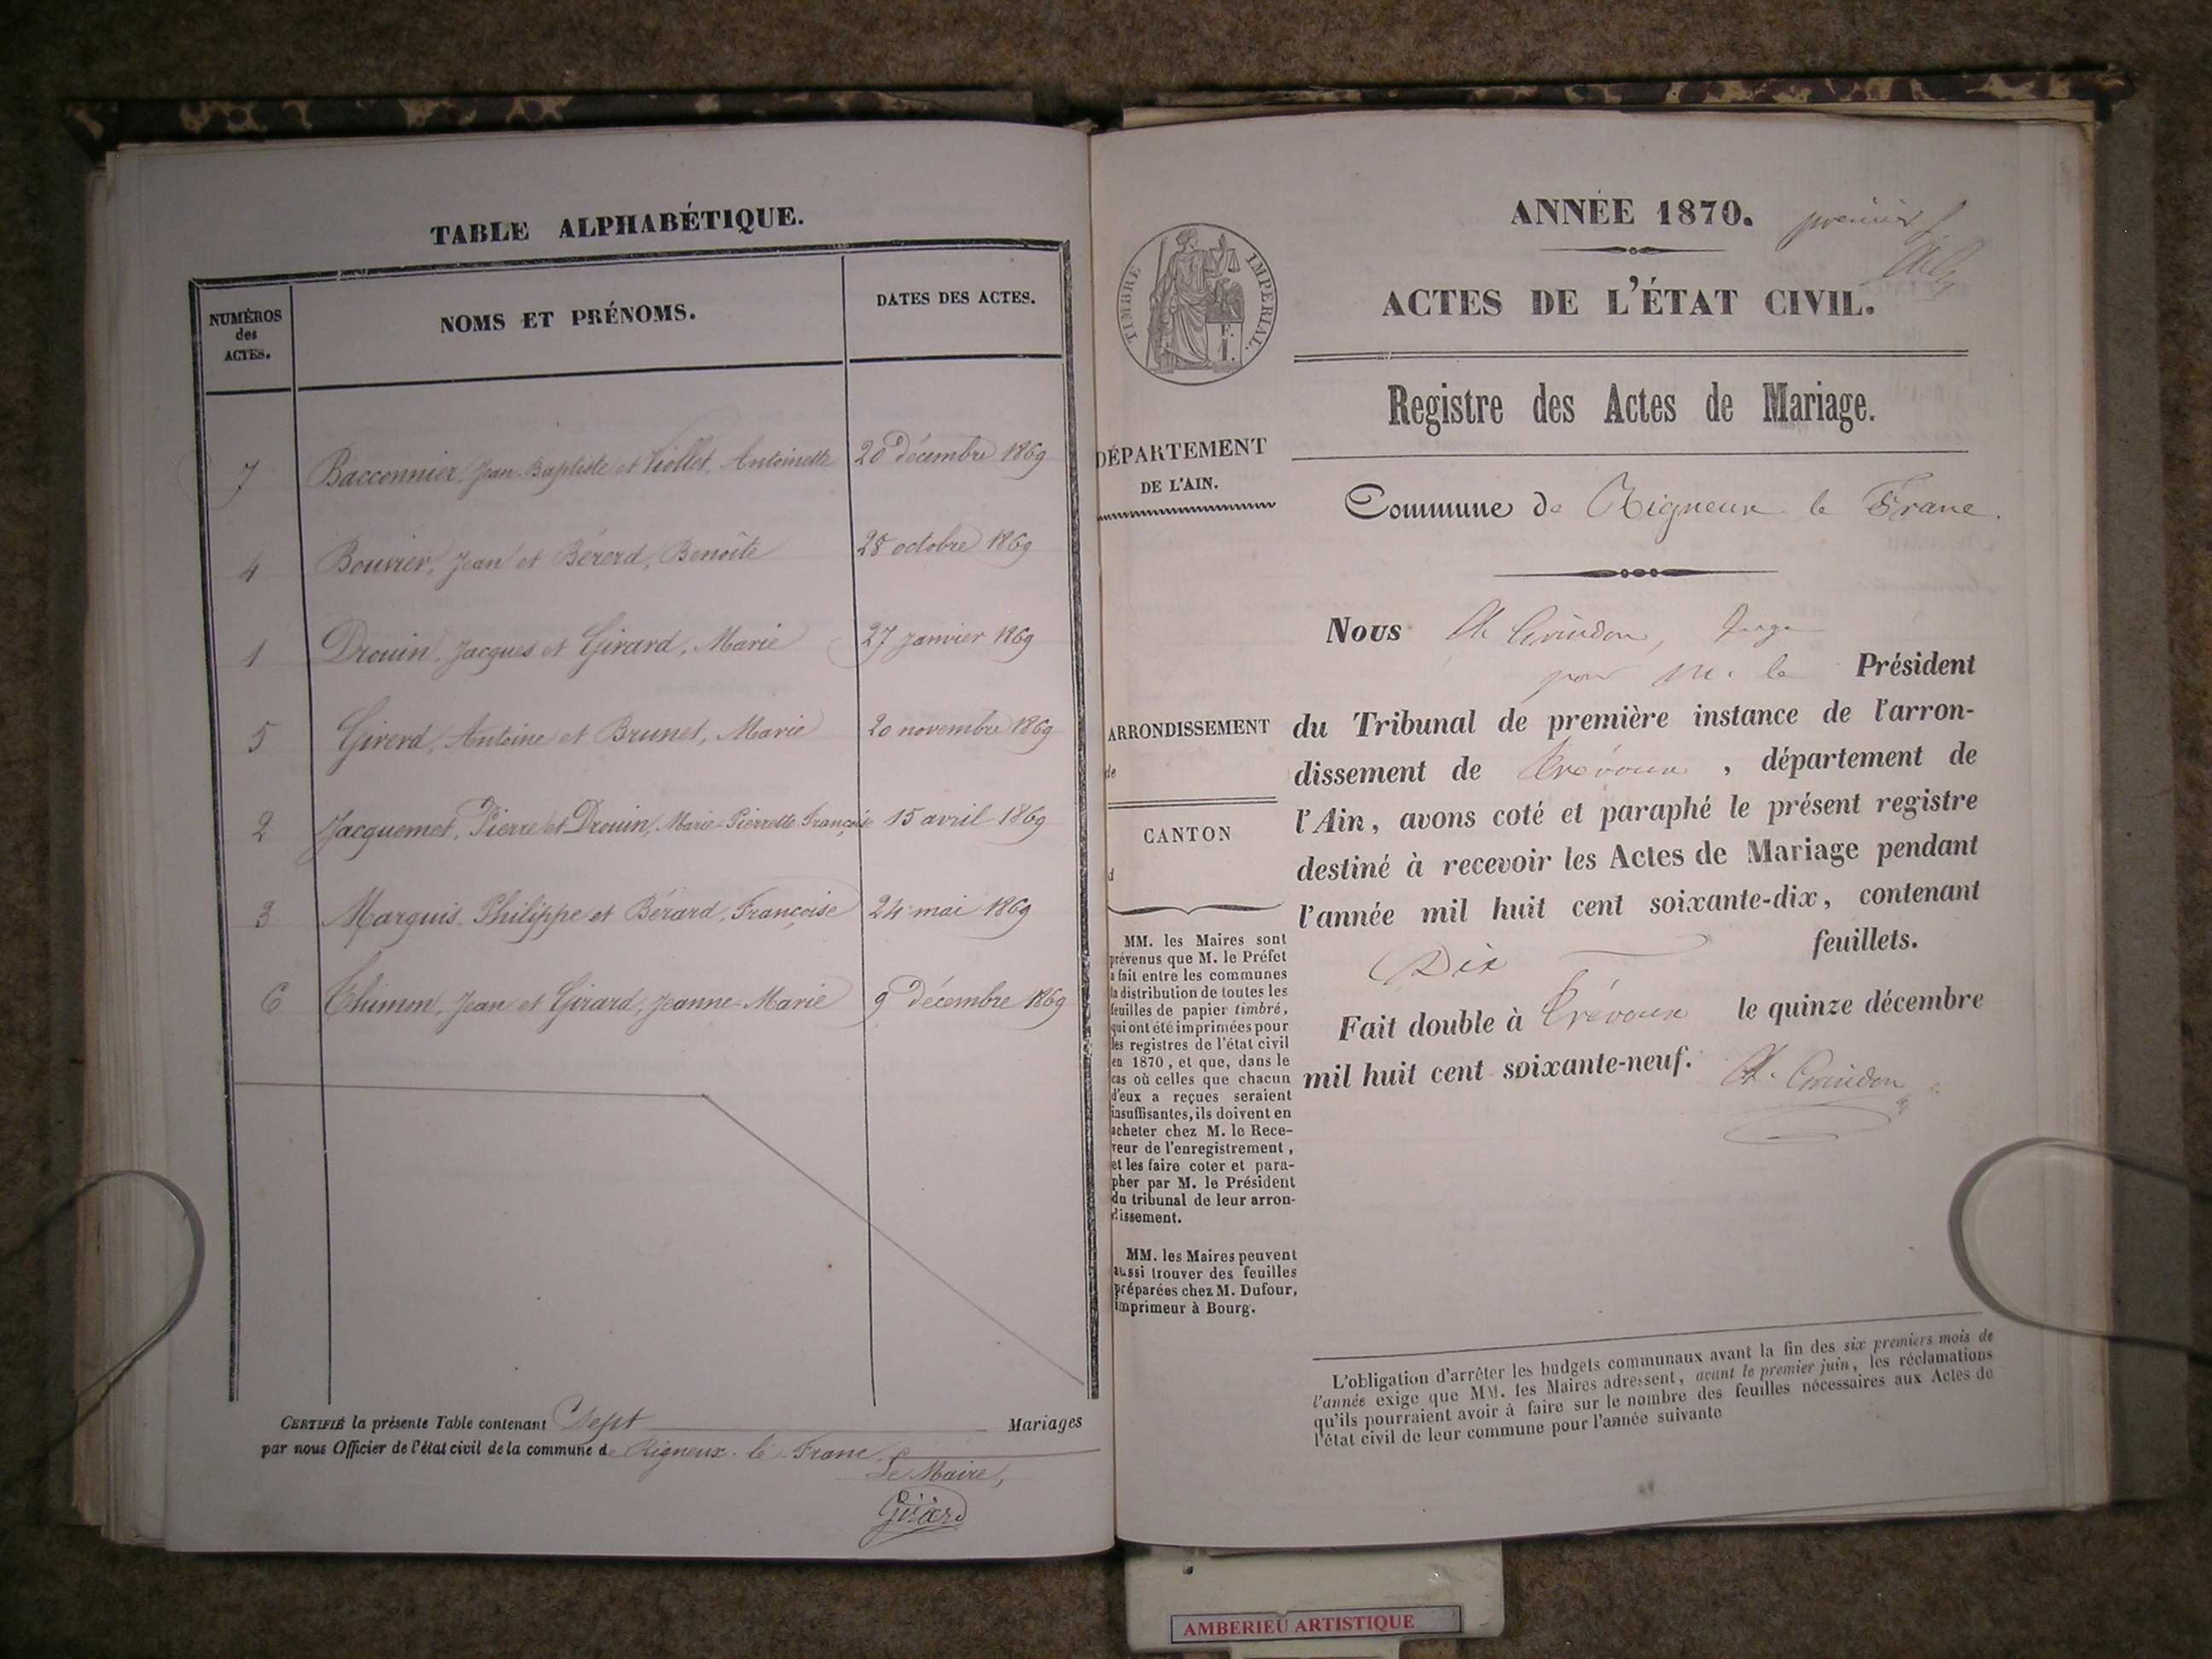 TABLE ALPHABÉTIQUE.
NUMÉROS des ACTES.
NOMS ET PRÉNOMS.
DATES DES ACTES.
7 Bacconnier, Jean-Baptiste et Viollet, Antoinette 20 décembre 1869
4 Bouvier, Jean et Bérerd, Benoîte 28 octobre 1869
1 Drouin, Jacques et Girard, Marie 27 janvier 1869
5 Girerd, Antoine et Brunet, Marie 20 novembre 1869
2 Jacquemet, Pierre et Drouin, Marie-Pierrette Françoise 15 avril 1869
3 Marquis, Philippe et Bérard, Françoise 24 mai 1869
6 Thimon, Jean et Girard, Jeanne-Marie 9 décembre 1869
CERTIFIÉ la présente Table contenant Sept Mariages
par nous Officier de l'état civil de la commune de Rigneux-le-Franc
Le Maire,
Girard
ANNÉE 1870.
premier
TIMBRE IMPERIAL.
F.
1.
ACTES DE L'ÉTAT CIVIL.
Registre des Actes de Mariage.
DÉPARTEMENT
DE L'AIN.
Commune de Rigneux le Franc.
Nous juge
pour M. le Président
ARRONDISSEMENT
de
du Tribunal de première instance de l'arron-
dissement de Trévoux, département de
l'Ain, avons coté et paraphé le présent registre
destiné à recevoir les Actes de Mariage pendant
l'année mil huit cent soixante-dix, contenant
Dix feuillets.
Fait double à Trévoux le quinze décembre
mil huit cent soixante-neuf.
CANTON
d
MM. les Maires sont
prévenus que M. le Préfet
a fait entre les communes
la distribution de toutes les
feuilles de papier timbré,
qui ont été imprimées pour
les registres de l'état civil
en 1870, et que, dans le
cas où celles que chacun
d'eux a reçues seraient
insuffisantes, ils doivent en
acheter chez M. le Rece-
veur de l'enregistrement,
et les faire coter et para-
pher par M. le Président
du tribunal de leur arron-
dissement.
MM. les Maires peuvent
aussi trouver des feuilles
préparées chez M. Dufour,
imprimeur à Bourg.
L'obligation d'arrêter les budgets communaux avant la fin des six premiers mois de
l'année exige que MM. les Maires adressent, avant le premier juin, les réclamations
qu'ils pourraient avoir à faire sur le nombre des feuilles nécessaires aux Actes de
l'état civil de leur commune pour l'année suivante
AMBERIEU ARTISTIQUE